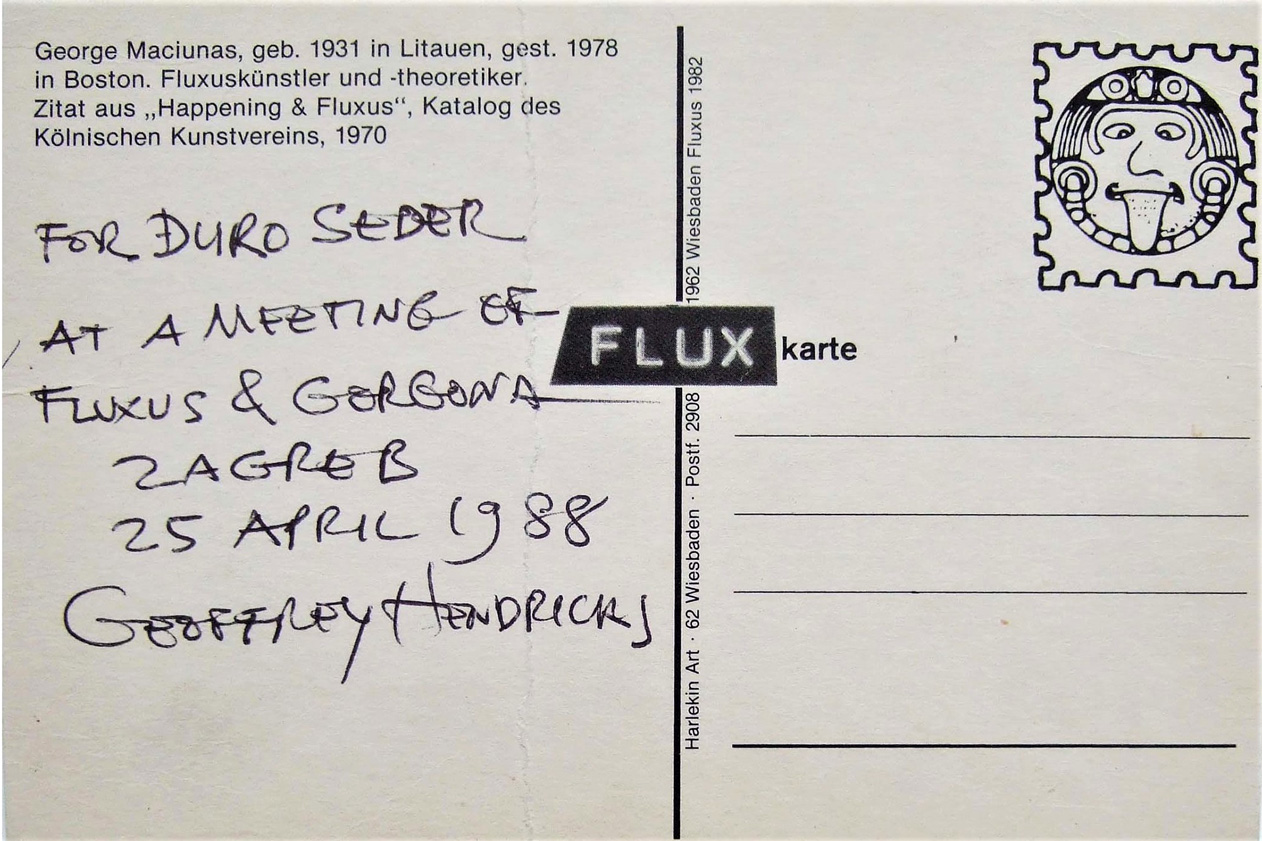 George Maciunas, geb. 1931 in Litauen, gest. 1978
in Boston. Fluxuskünstler und -theoretiker.
Zitat aus „Happening & Fluxus“, Katalog des
Kölnischen Kunstvereins, 1970
FOR DURO SEDER
AT A MEETING OF
FLUXUS & GORGONA
ZAGREB
25 APRIL 1988
GEOFFREY HENDRICKS
FLUX karte
Harlekin Art · 62 Wiesbaden · Postf. 2908
1962 Wiesbaden Fluxus 1982